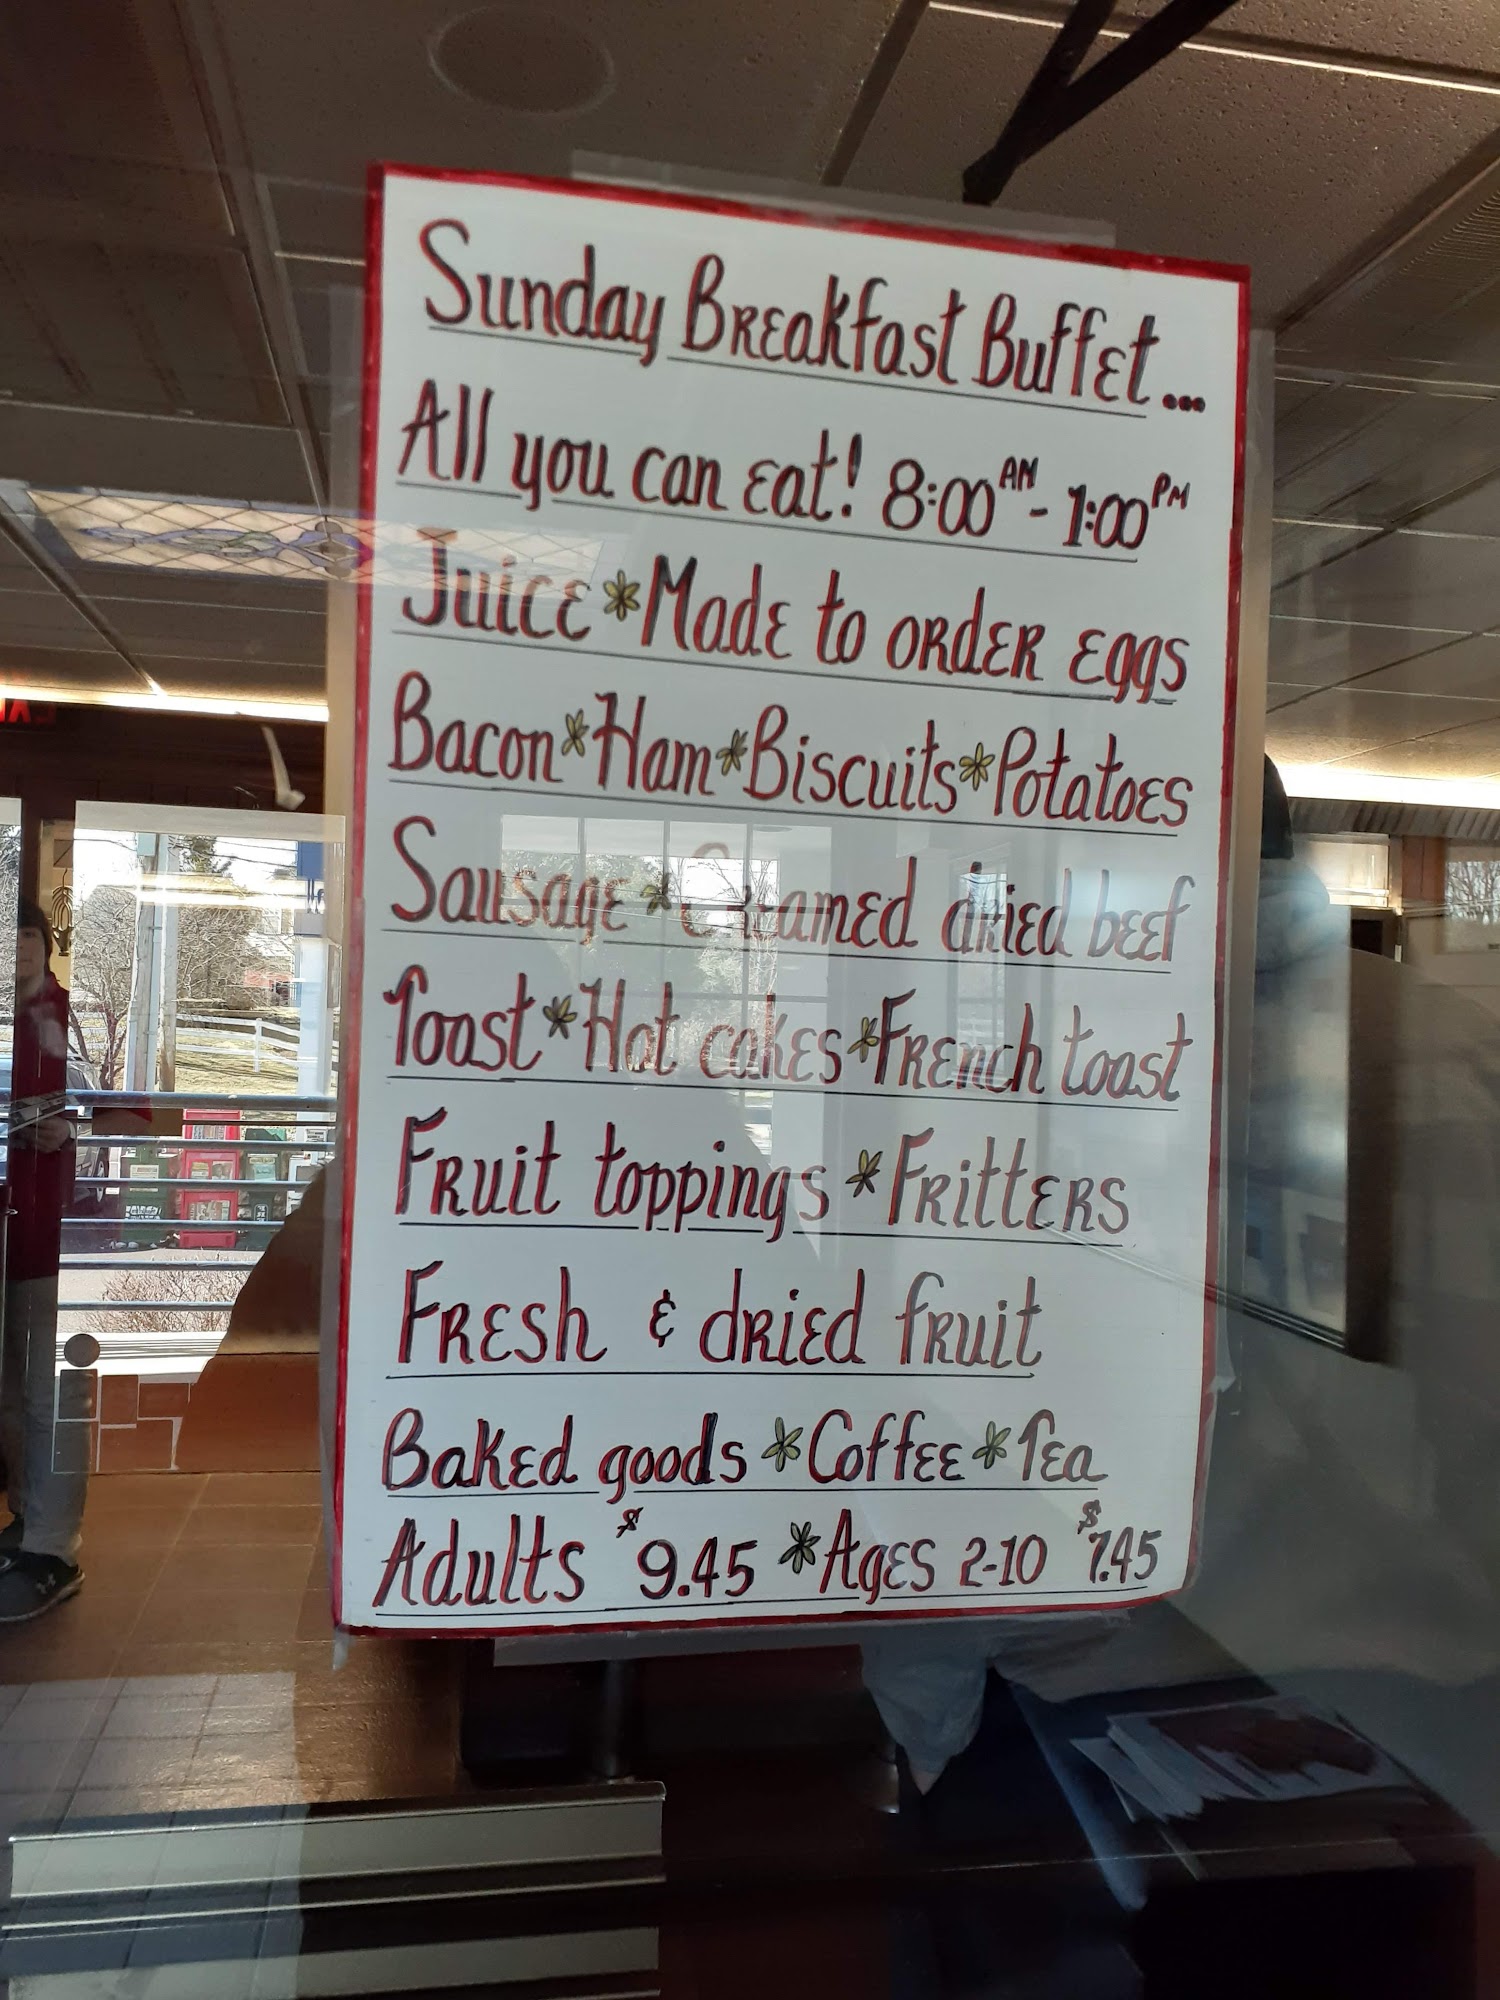 Sunday Breakfast Buffet...
All you can eat! 8:00 AM - 1:00 PM
Juice * Made to order eggs
Bacon * Ham * Biscuits * Potatoes
Sausage * Creamed dried beef
Toast * Hot cakes * French toast
Fruit toppings * Fritters
Fresh & dried fruit
Baked goods * Coffee * Tea
Adults $9.45 * Ages 2-10 $7.45